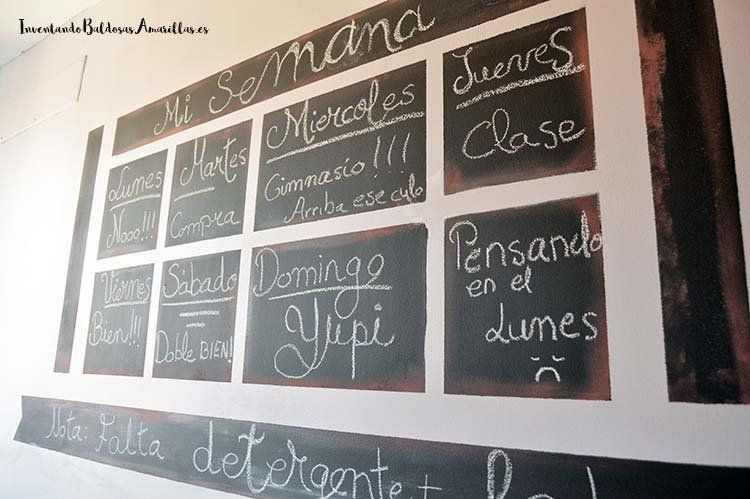 InventandoBaldosasAmarillas.es
Mi Semana
Lunes
Nooo!!!
Martes
Compra
Miercoles
Gimnasio!!!
Arriba ese culo
Jueves
Clase
Viernes
Bien!!!
Sabado
Doble BIEN!
Domingo
Yupi
Pensando
en el
Lunes
Nota: Falta detergente +